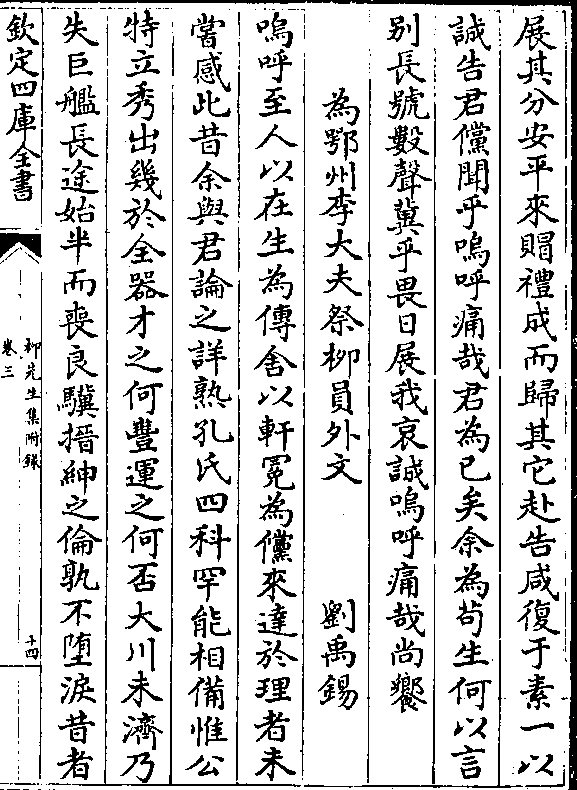 展其分安平來賵禮成而歸其它赴告咸復于素一以
誠告君儻聞乎嗚呼痛哉君為已矣余為苟生何以言
别長號數聲冀乎畏日展我哀誠嗚呼痛哉尚饗
為鄂州李大夫祭柳員外文 劉禹錫
嗚呼至人以在生為傳舍以軒冕為儻來達於理者未
嘗感此昔余與君論之詳熟孔氏四科罕能相備惟公
特立秀出幾於全器才之何豐運之何否大川未濟乃
失巨艦長途始半而喪良驥搢紳之倫孰不墮淚昔者
欽定四庫全書
柳先生集附錄
卷三
十四